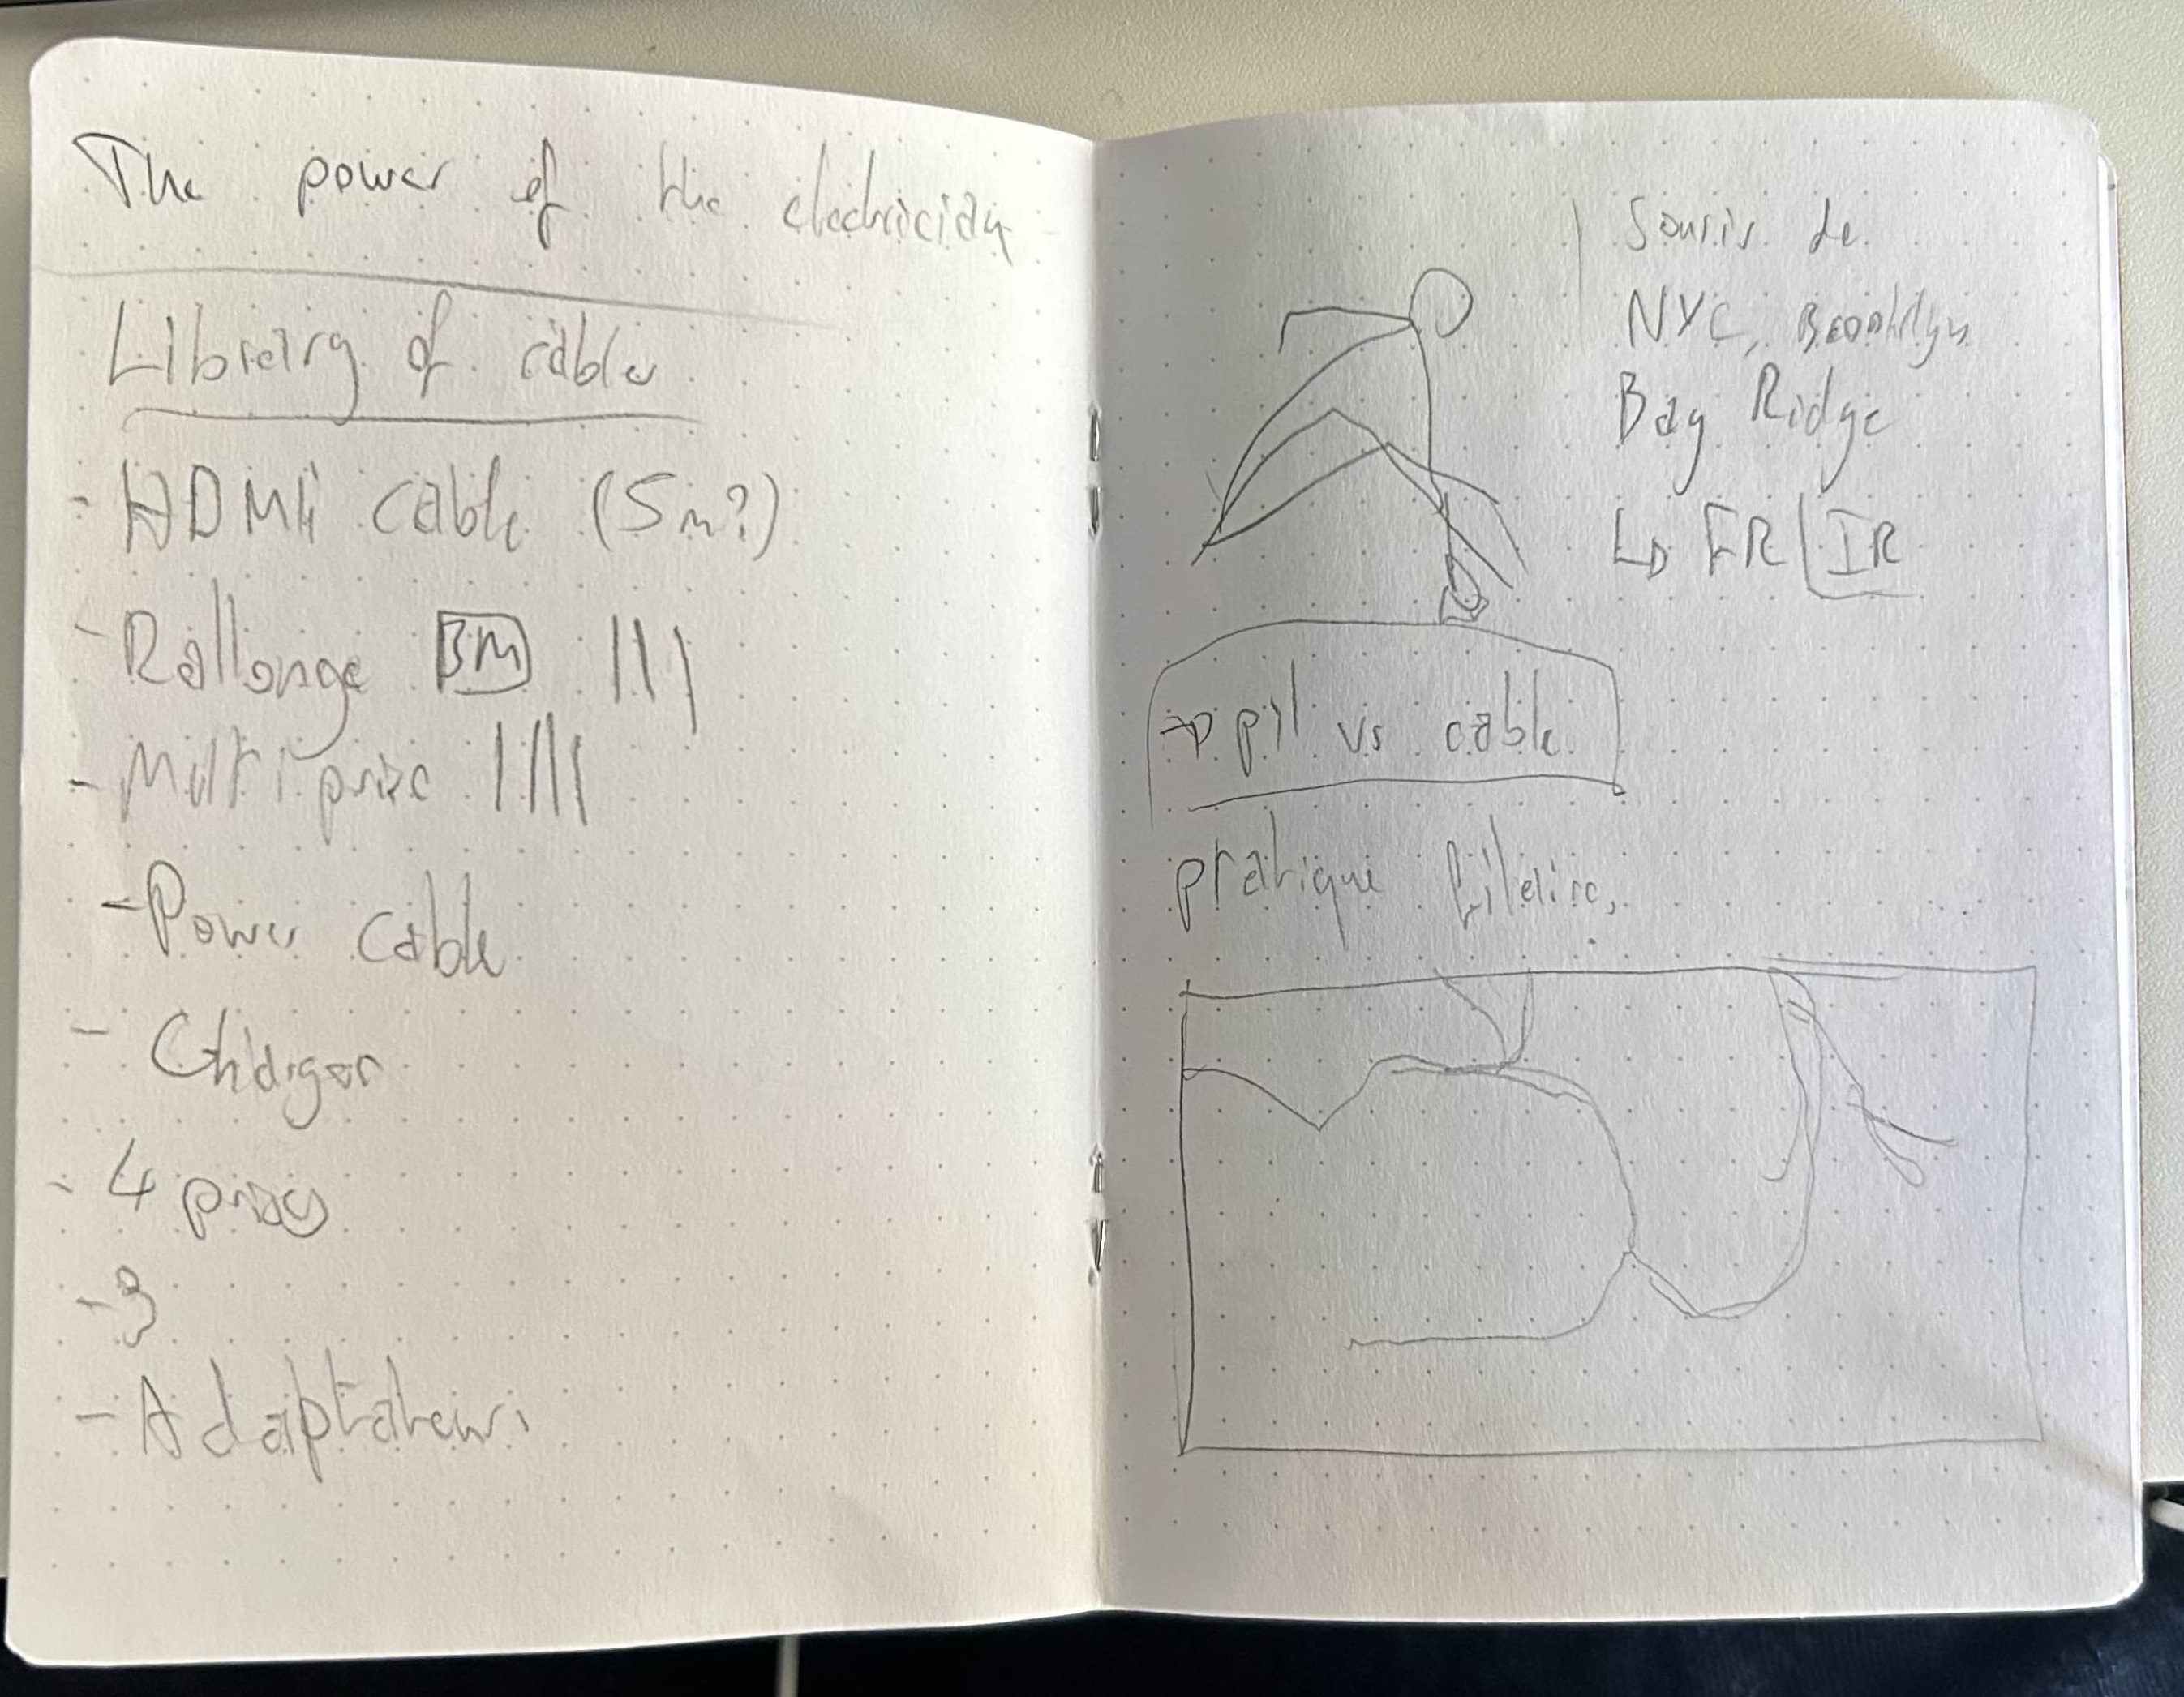 The power of the electricity
Library of cable
- HDMI cable (5m?)
- Rallonge 3M |||
- Multiprise ||||
- Power cable
- Charger
- 4 prises
- 3
- Adaptateur
Souris de
NYC, Brooklyn
Bay Ridge
↳ FR | IR
→ pil vs cable
pratique filaire,